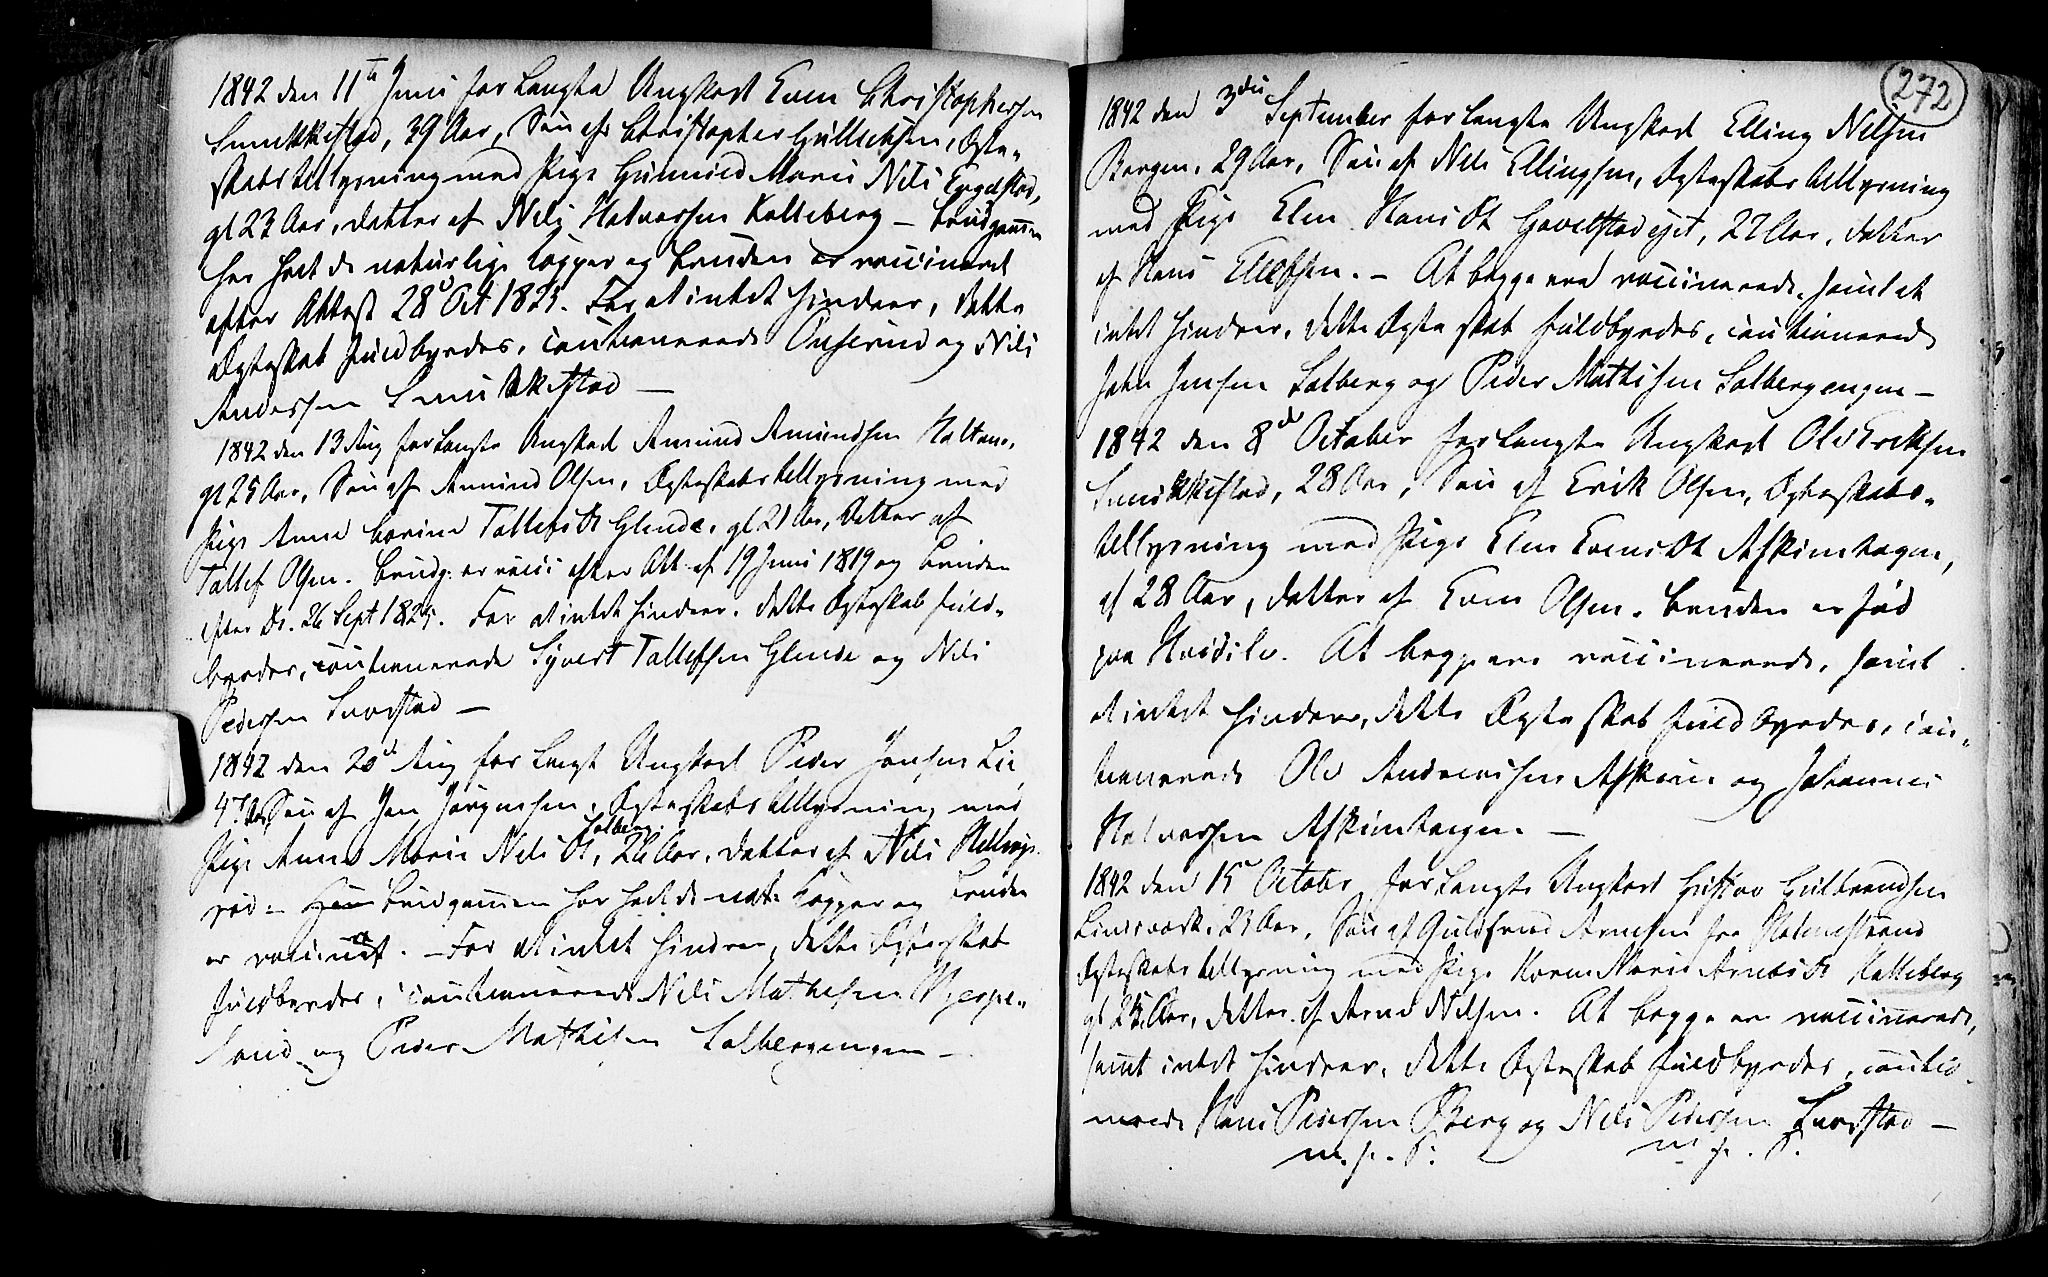 1842 den 11te Juni forlangte Ungkarl Even Christophersen
Smukkestad, 39 Aar, Søn af Christopher Gulliksen, Ægte-
skabstillysning med Pige Gunnild Marie Nils Engelstad,
gl 23 Aar, datter af Nils Halvorsen Kalleberg – Brudgommen
har havt de naturlige Kopper og Bruden er vaccineret
efter Attest 28 Oct 1825. For at intet hindrer, dette
Ægteskab fuldbyrdes, cautionerede og Nils
Andersen Smukkestad –
1842 den 13 Aug forlangte Ungkarl Amund Amundsen Holtane,
gl 25 Aar, Søn af Amund Olsen, Ægteskabstillysning med
Pige Anne Corine Tollefs Dt Glende, gl 21 Aar, Datter af
Tollef Olsen. Brudg. er vacci efter Att. af 19 Juni 1819 og Bruden
efter Do. 26 Sept 1825. For at intet hindrer, dette Ægteskab fuld-
byrdes, cautionerede Syvert Tollefsen Glende og Nils
Pedersen Snorstad –
1842 den 20de Aug forlangt Ungkarl Peder Jensen Lie
Søn af Jen Jørgensen, Ægteskabstillysning med
Pige Anne Marie Nils Dt, Solberg 26 Aar, datter af Nils
rød – Brudgommen har havt de nat. Kopper og Bruden
er vaccineret. – For at intet hindrer, dette Ægteskab
fuldbyrdes, cautionerede Nils Mathesen
land og Peder Mathisen Solbergengen –
272
1842 den 3die September forlangte Ungkarl Elling Nilsen
Bergen, 29 Aar, Søn af Nils Ellingsen, Ægteskabstillysning
med Pige Elen Hans Dt Gavelstadejet, 22 Aar, datter
af Hans Ellefsen. – At begge ere vaccinerede, samt at
intet hindrer, dette Ægteskab fuldbyrdes, cautionerede
John Jensen Solberg og Peder Mathisen Solbergengen –
1842 den 8de October forlangte Ungkarl Ole Eriksen
Smukkestad, 28 Aar, Søn af Erik Olsen, Ægteskabs-
tillysning med Pige Elen Evens Dt Askimhagen,
gl 28 Aar, datter af Even Olsen. Bruden er fød
paa. At begge ere vaccinerede, samt
at intet hindrer, dette Ægteskab fuldbyrdes, cau-
tionerede Ole Andreassen Askim og Johannes
Halvorsen Askimhagen –
1842 den 15 October forlangte Ungkarl Gustav Gulbrandsen
23 Aar, Søn af Arnesen fra Holmestrand
Ægteskabstillysning med Pige Karen Marie Arnes Dt Kalleberg
gl 25 Aar, datter af Arne Nilsen. At begge ere vaccinerede,
samt intet hindrer, dette Ægteskab fuldbyrdes, cautio-
nerede Hans Pedersen Berg og Nils Pedersen Snorstad –
m. p. P. m. p. P.